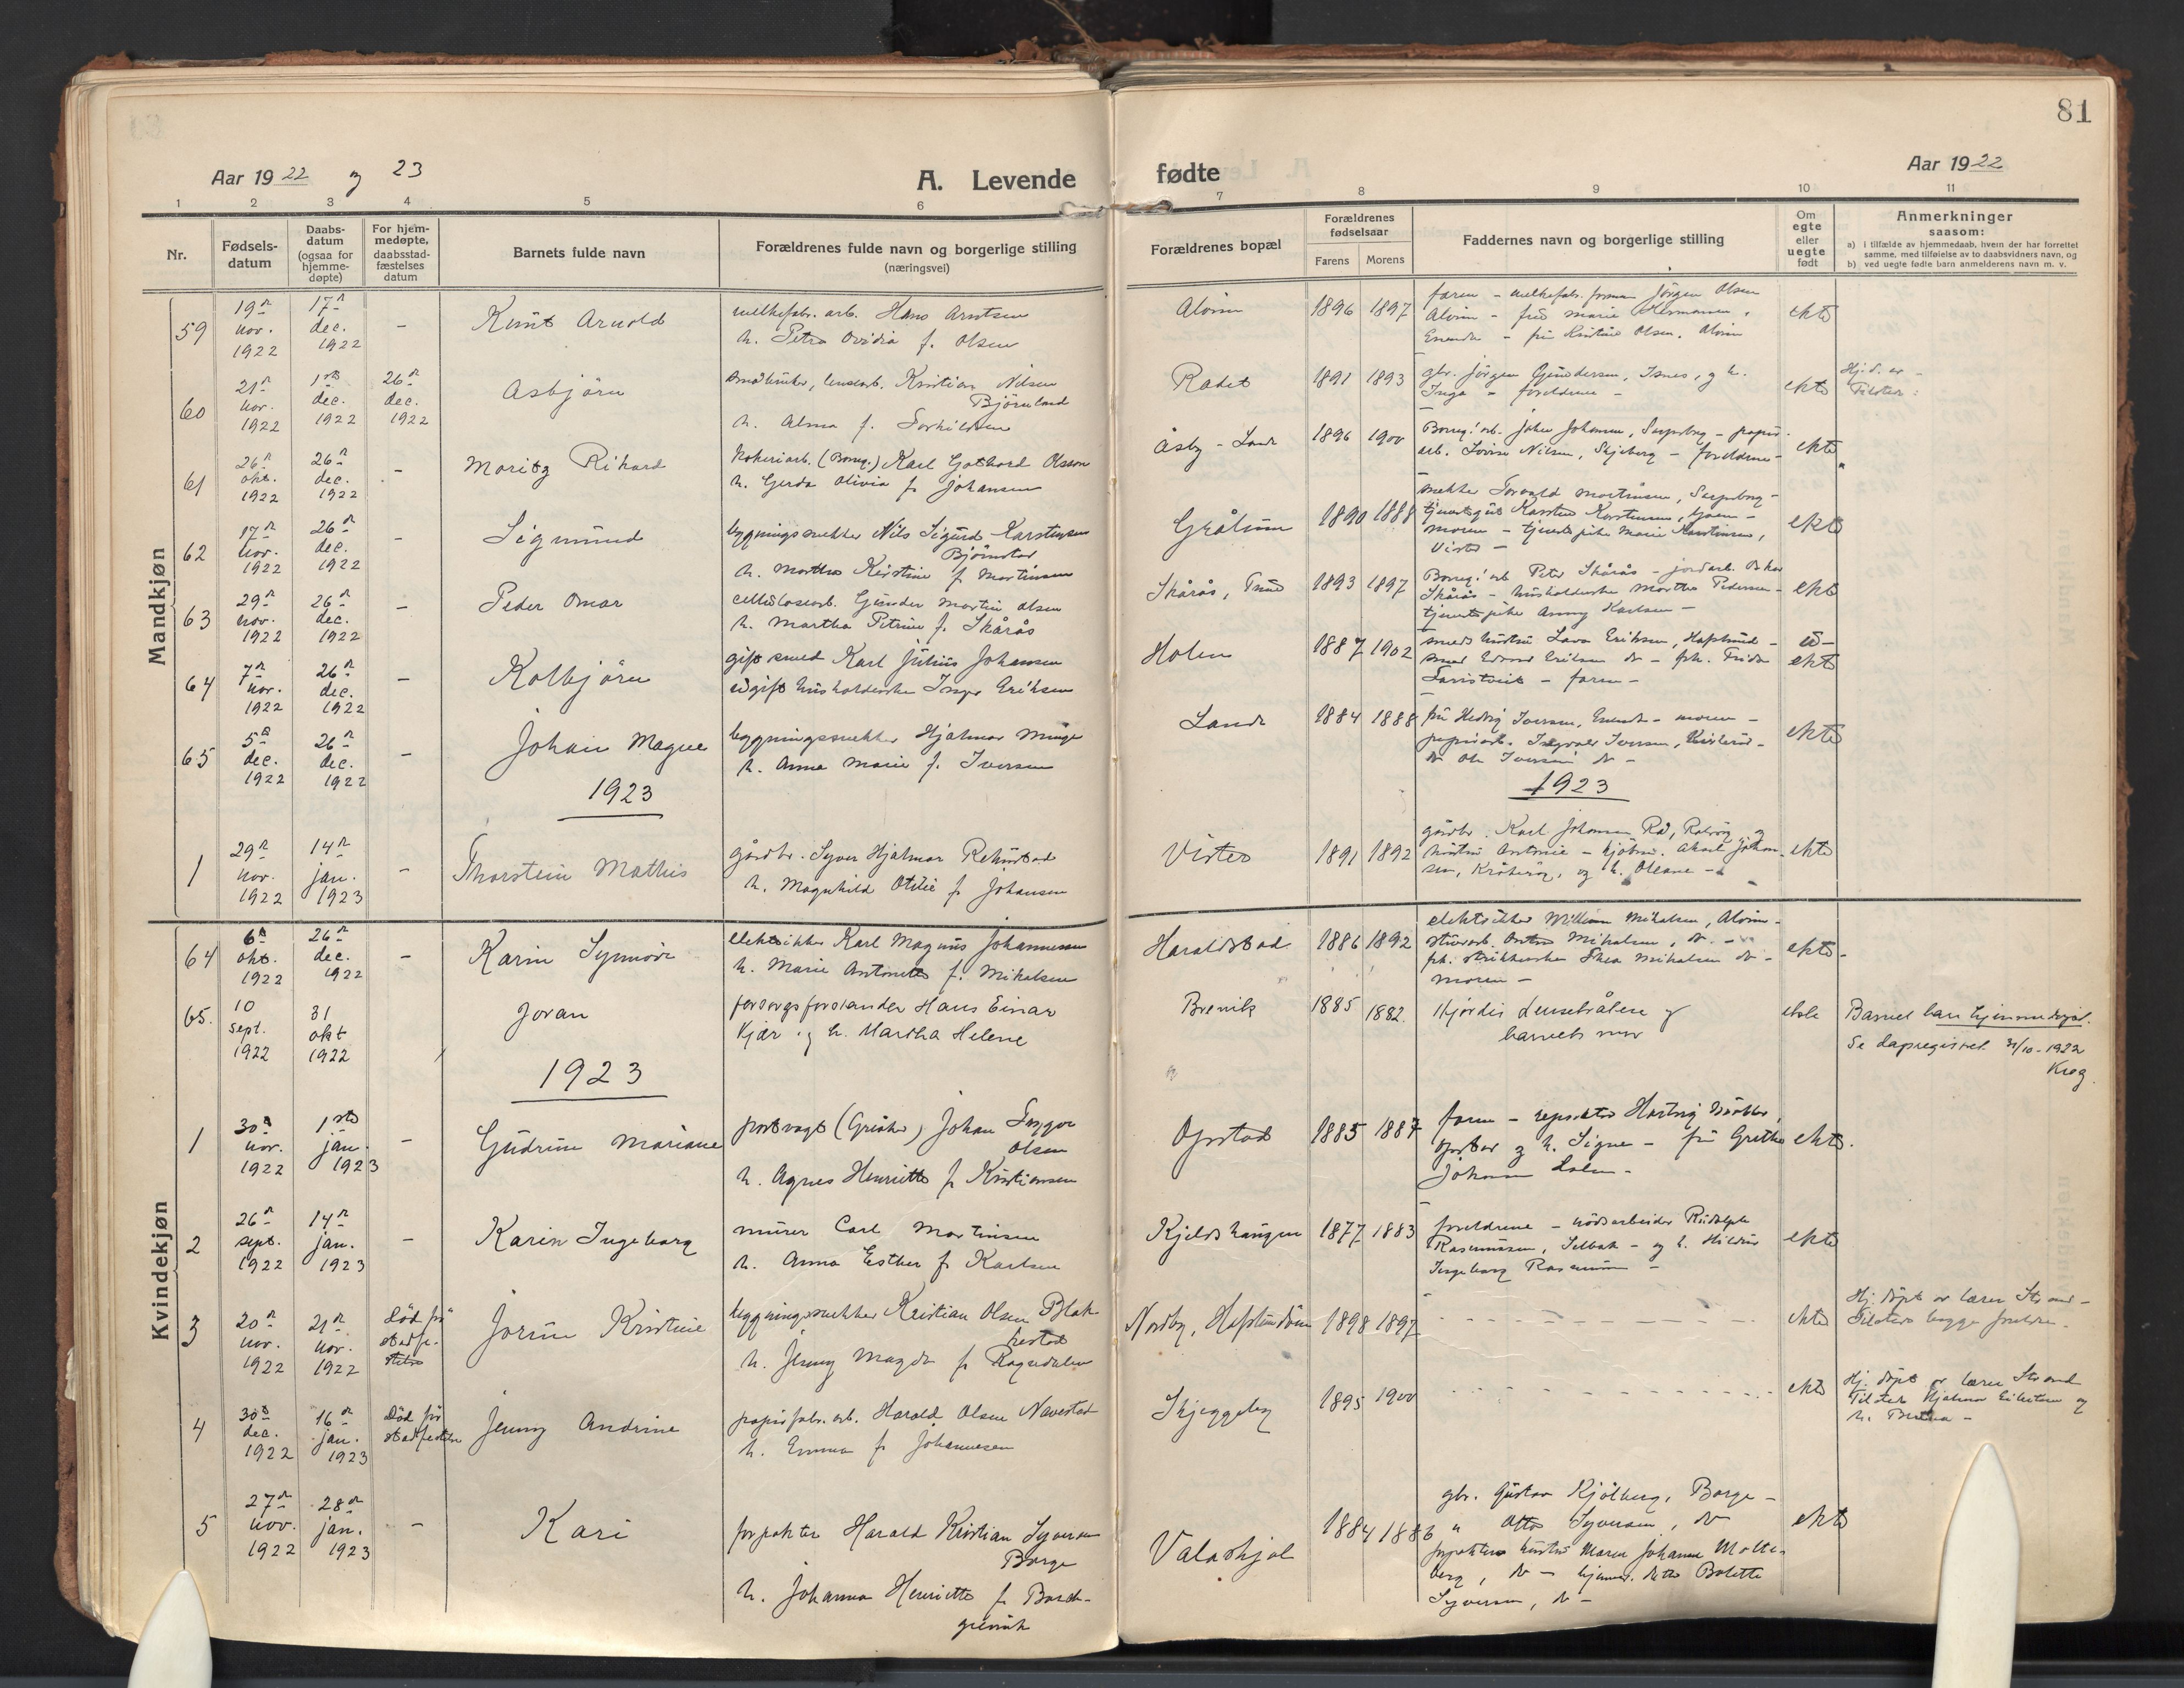 81
Aar 1922 og 23
A. Levende fødte
Aar 1922
1 2 3 4 5 6 7 8 9 10 11
Nr.
Fødsels-
datum
Daabs-
datum
(ogsaa for
hjemme-
døpte)
For hjem-
medøpte,
daabsstad-
fæstelses
datum
Barnets fulde navn
Forældrenes fulde navn og borgerlige stilling
(næringsvei)
Forældrenes bopæl
Forældrenes
fødselsaar
Farens Morens
Faddernes navn og borgerlige stilling
Om
egte
eller
uegte
født
Anmerkninger
saasom:
a) i tilfælde av hjemmedaab, hvem der har forrettet
samme, med tilføielse av to daabsvidners navn, og
b) ved uegte fødte barn anmelderens navn m. v.
Mandkjøn
59
19de nov. 1922
17de dec. 1922
-
Knut Arnold
arb. Hans Arntsen
h. Petra Ovidia f. Olsen
Alvim
1896 1897
faren - Jörgen Olsen
Alvim - frö Marie Hermansen,
- frü Kristine Olsen, Alvim
ekte
60
21de nov. 1922
1ste dec. 1922
26de dec. 1922
Asbjörn
Kristian Nilsen
Björnland
h. Alma f. Torkildsen
Radet
1891 1893
gbr. Jörgen Gundersen, Isnes, og h.
Inga - foreldrene -
ekte
61
26de okt. 1922
26de dec. 1922
-
Moritz Rikard
kokeriarb. (Borreg.) Karl Gothard Olsson
h. Gerda Olivia f. Johansen
Åsby - Lande
1896 1900
Borreg. arb. Johan Johansen, Sarpsborg - papir-
arb. Lovise Nilsen, Skjeberg - foreldrene -
ekte
62
17de nov. 1922
26de dec. 1922
-
Sigmund
bygningssnekker Nils Sigurd Karstensen
Björnstad
h. Martha Kirstine f. Martinsen
Grålum
1890 1888
snekker Torvald Martinsen, Sarpsborg -
tjenestegut Karsten Karstensen,
moren - tjenestepike Marie Karstensen,
Vister -
ekte
63
29de nov. 1922
26de dec. 1922
-
Peder Omar
cellulosearb. Gunder Martin Olsen
h. Martha Petrine f. Skårås
Skårås, Tune
1893 1897
Borreg. arb. Peter Skårås - jordarb. Oskar
Skårås - husholderske Marthe Pedersen -
tjenestepike Anny Karlsen -
ekte
64
7de nov. 1922
26de dec. 1922
-
Kolbjörn
gift smed Karl Julius Johansen
ugift husholderske Inger Eriksen
Holen
1887 1902
smeds hustru Lava Eriksen, Hafslund -
smed Edvard Eriksen do - frk. Frida
- faren -
u-
ekte
65
5te dec. 1922
26de dec. 1922
-
Johan Magne
bygningssnekker Hjalmar Minge
h. Anna Marie f. Iversen
Lande
1884 1888
frü Hedvig Iversen, - moren -
papirarb. Ingvald Iversen,
do Ole Iversen do -
ekte
1923
1923
1
29de nov. 1922
14de jan. 1923
-
Thorstein Mathis
gårdbr. Syver Hjalmar Rekustad
h. Magnhild Otilie f. Johansen
Vister
1891 1892
gårdbr. Karl Johansen Rå, Rakröy og
hustru Antonie - Aksel Johan-
sen, Kråkeröy, og h. Oleane -
ekte
Kvindekjøn
64
6te okt. 1922
26de dec. 1922
-
Karin Synnöve
elektriker Karl Magnus Johannessen
h. Marie Antonette f. Mikalsen
Haraldstad
1886 1892
elektriker William Mikalsen, Alvim -
Anton Mikalsen, do. -
frk. strikkerske Thea Mikalsen do -
moren -
ekte
65.
10 sept. 1922
31 okt 1922
Jovan
forsorgsforstander Hans Einar
Kjær og h. Martha Helene
Brevik
1885 1882.
Hjördis og
barnets mor
ekte
Barnet kun hjemmedøpt.
Se dapregistret 31/10-1922
Krog
1923
1
30te nov. 1922
1ste jan. 1923
-
Gudrun Mariane
portvagt (Greåker) Johan Trygve
Olsen
h. Agnes Henriette f. Kristiansen
Opstad
1885 1887
faren - Hartvig
Opstad og h. Signe - frü Grethe
Johanne
ekte.
2
26de sept. 1922
14de jan. 1923
-
Karin Ingeborg
murer Carl Martinsen
h. Anna Esther f. Karlsen
Kjeldshaugen
1877 1883
foreldrene - Rudolph
Rasmussen, Selbak - og h. Hildur
Ingeborg Rasmussen -
ekte
3
20de nov. 1922
21de nov. 1922
död för
stadfe-
stelse
Jorun Kristine
bygningssnekker Kristian Olsen Blak-
kestad
h. Jenny Magda f. Ragndalen
Norby, Hafslundsöen
1898 1897
ekte
Hj. döpt av lærer Strand -
Tilstede begge foreldre.
4
30te dec. 1922
16de jan. 1923
död för
stadfestelse
Jenny Andrine
papirfabr. arb. Harald Olsen Navestad
h. Emma f. Johannesen
Skjeggeby
1895 1900
ekte
Hj. döpt av lærer Strand
Tilstede Hjalmar og
h. Berthea -
5
27de nov. 1922
28de jan. 1923
-
Kari
forpakter Harald Kristian Syversen
Borge
h. Johanna Henriette f. Bord-
grevink
Valaskjol
1884 1886
gbr. Gustav Kjölberg, Borge -
" Otto Syversen, do
forpakters hustru Maren Johanne Molte-
berg, do - hjemmev. datter Bolette
Syversen, do -
ekte